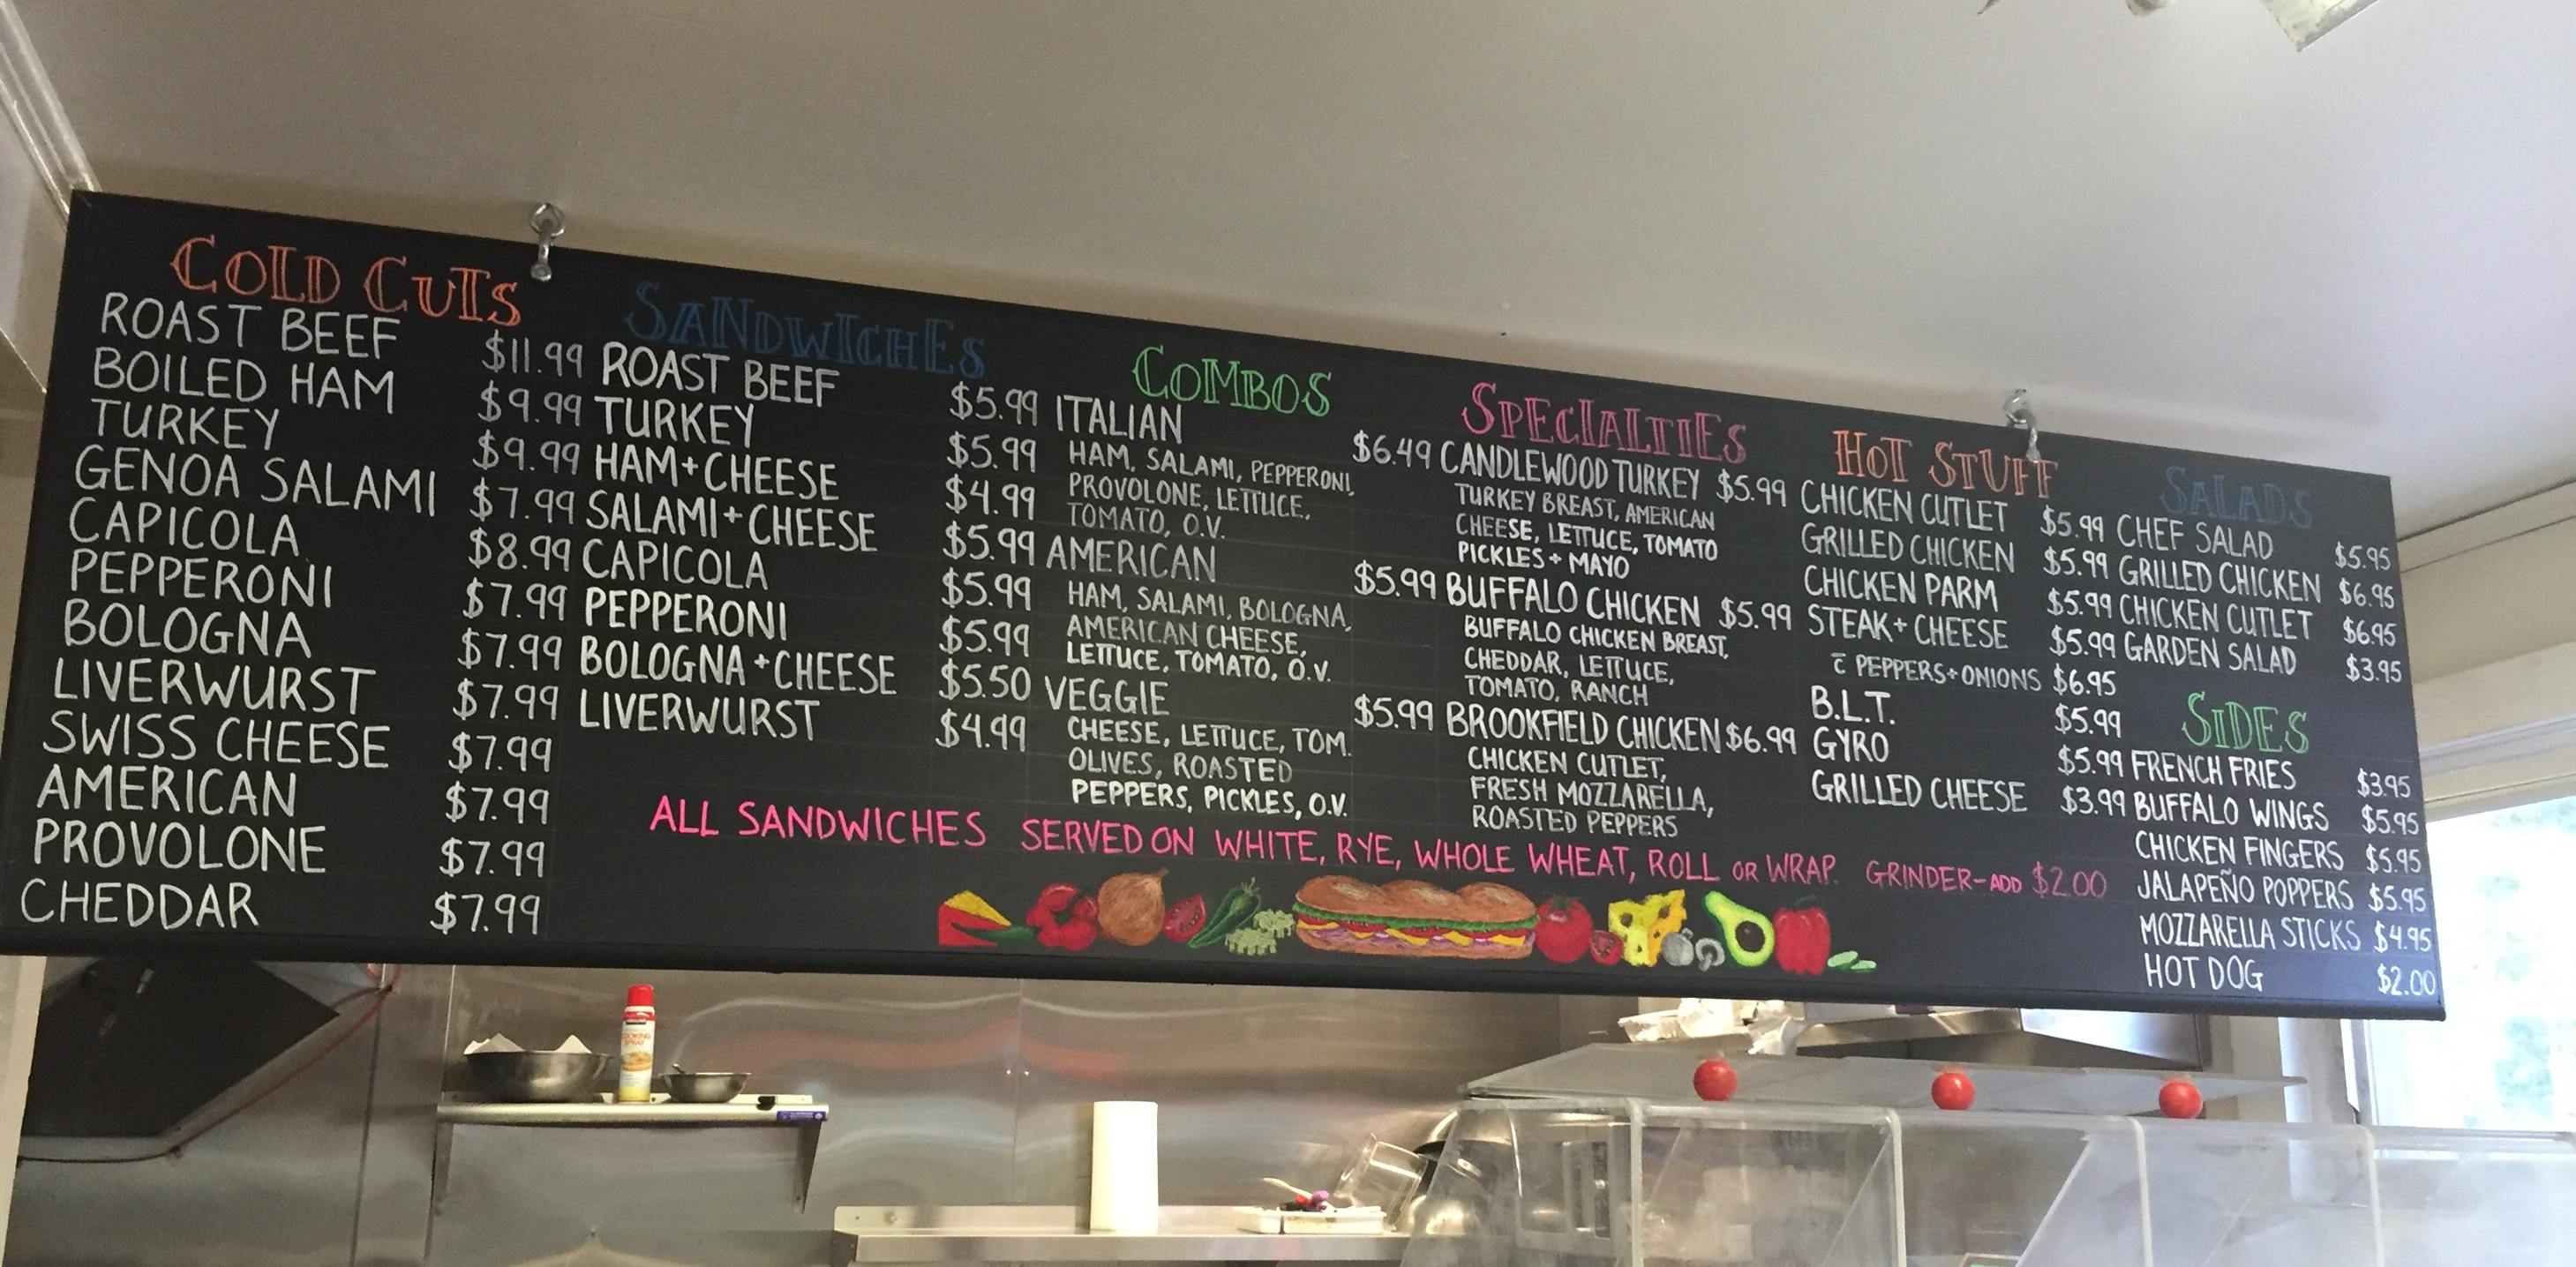 COLD CUTS
ROAST BEEF $11.99
BOILED HAM $9.99
TURKEY $9.99
GENOA SALAMI $7.99
CAPICOLA $8.99
PEPPERONI $7.99
BOLOGNA $7.99
LIVERWURST $7.99
SWISS CHEESE $7.99
AMERICAN $7.99
PROVOLONE $7.99
CHEDDAR $7.99
SANDWICHES
ROAST BEEF $5.99
TURKEY $5.99
HAM+CHEESE $4.99
SALAMI+CHEESE $5.99
CAPICOLA $5.99
PEPPERONI $5.99
BOLOGNA+CHEESE $5.50
LIVERWURST $4.99
COMBOS
ITALIAN $6.49
HAM, SALAMI, PEPPERONI,
PROVOLONE, LETTUCE,
TOMATO, O.V.
AMERICAN $5.99
HAM, SALAMI, BOLOGNA,
AMERICAN CHEESE,
LETTUCE, TOMATO, O.V.
VEGGIE $5.99
CHEESE, LETTUCE, TOM.
OLIVES, ROASTED
PEPPERS, PICKLES, O.V.
SPECIALTIES
CANDLEWOOD TURKEY $5.99
TURKEY BREAST, AMERICAN
CHEESE, LETTUCE, TOMATO
PICKLES + MAYO
BUFFALO CHICKEN $5.99
BUFFALO CHICKEN BREAST,
CHEDDAR, LETTUCE,
TOMATO, RANCH
BROOKFIELD CHICKEN $6.99
CHICKEN CUTLET,
FRESH MOZZARELLA,
ROASTED PEPPERS
HOT STUFF
CHICKEN CUTLET $5.99
GRILLED CHICKEN $5.99
CHICKEN PARM $5.99
STEAK+ CHEESE $5.99
c̄ PEPPERS+ONIONS $6.95
B.L.T. $5.99
GYRO $5.99
GRILLED CHEESE $3.99
SALADS
CHEF SALAD $5.95
GRILLED CHICKEN $6.95
CHICKEN CUTLET $6.95
GARDEN SALAD $3.95
SIDES
FRENCH FRIES $3.95
BUFFALO WINGS $5.95
CHICKEN FINGERS $5.95
JALAPEÑO POPPERS $5.95
MOZZARELLA STICKS $4.95
HOT DOG $2.00
ALL SANDWICHES SERVED ON WHITE, RYE, WHOLE WHEAT, ROLL OR WRAP. GRINDER-ADD $2.00
COOKING
SPRAY